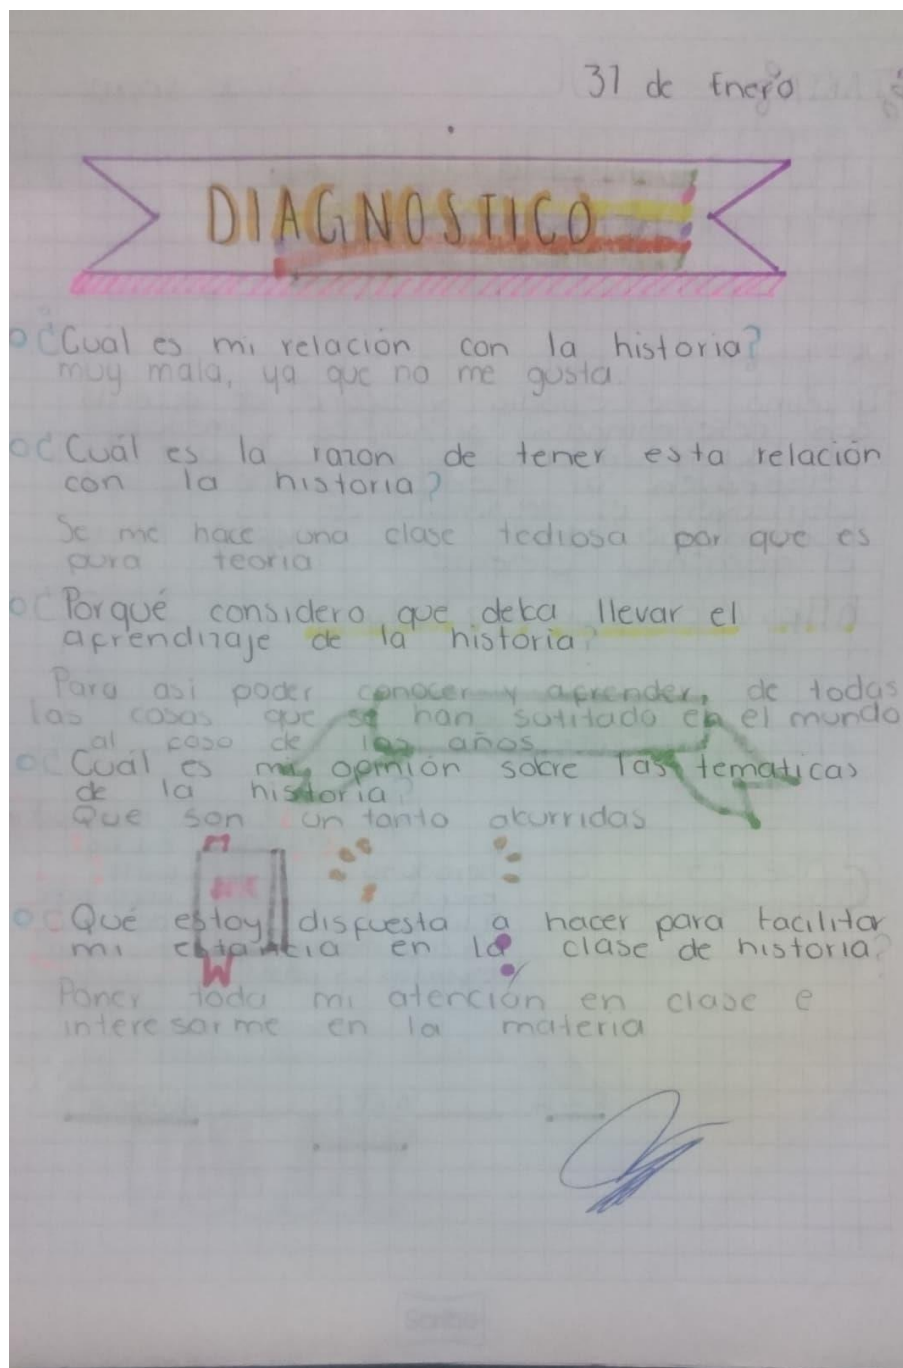 31 de Enero
DIAGNOSTICO
¿Cuál es mi relación con la historia?
muy mala, ya que no me gusta
¿Cuál es la razon de tener esta relación
con la historia?
Se me hace una clase tediosa por que es
pura teoria
¿Porqué considero que deba llevar el
aprendizaje de la historia?
Para asi poder conocer y aprender, de todas
las cosas que se han en el mundo
al paso de los años
¿Cuál es mi opinión sobre las tematicas
de la historia?
Que son un tanto akurridas
¿Qué estoy dispuesta a hacer para facilitar
mi estancia en la clase de historia?
Poner toda mi atención en clase e
interesarme en la materia
Scribe